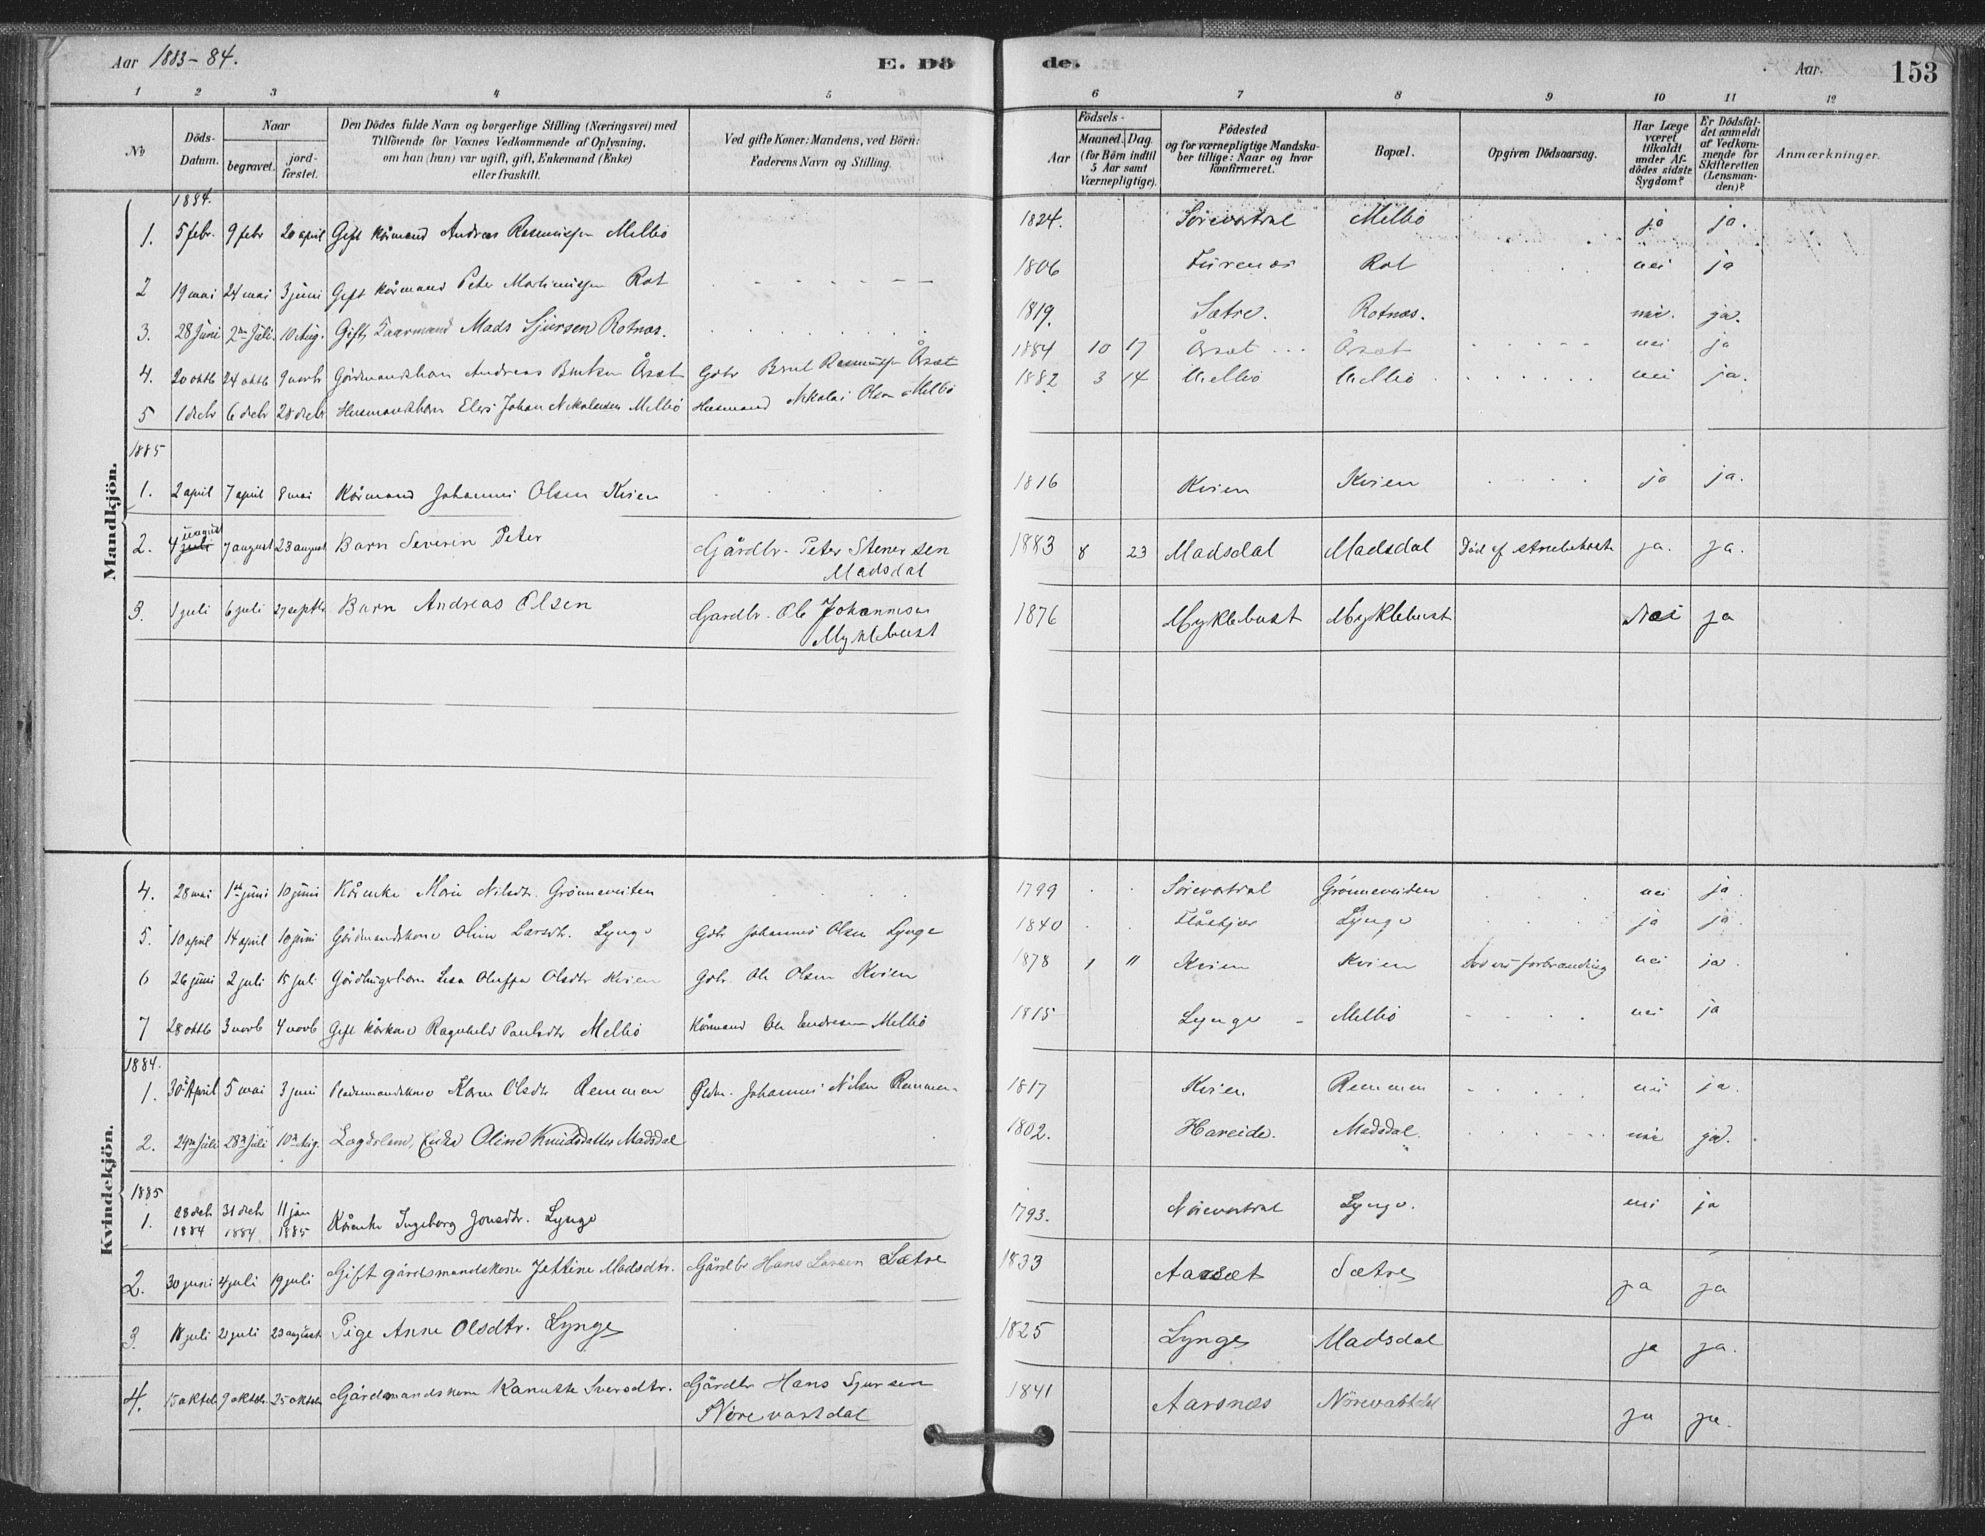 Aar 1883-84.
E. Dö de.
Aar.
153
1 2 3 4 5 6 7 8 9 10 11 12
No
Döds-Datum.
Naar
begravet.
jord-fæstet.
Den Dödes fulde Navn og borgerlige Stilling (Næringsvei) med
Tilföiende for Voxnes Vedkommende af Oplysning,
om han (hun) var ugift, gift, Enkemand (Enke)
eller fraskilt.
Ved gifte Koner: Mandens, ved Börn:
Faderens Navn og Stilling.
Födsels-
Aar
Maaned. Dag.
(for Börn indtil
5 Aar samt
Værnepligtige).
Födested
og for værnepligtige Mandska-
ber tillige: Naar og hvor
konfirmeret.
Bopæl.
Opgiven Dödsaarsag.
Har Læge
været
tilkaldt
under Af-
dödes sidste
Sygdom?
Er Dödsfal-
det anmeldt
af Vedkom-
mende for
Skifteretten
(Lensman-
den)?
Anmærkninger.
Mandkjön.
1884.
1. 5 febr. 9 febr 20 april Gift Kårmand Andreas Rasmussen Melbö 1824. Sørevartdal Melbö ja ja.
2 19 mai 24 mai 3 juni Gift Kårmand Peter Martinussen Rot 1806 Furenæs Rot nei ja
3. 28 Juni 2den Juli. 10 Aug. Gift, Kaarmand Mads Sjursen Rotnæs. 1819. Sætre. Rotnæs. nei. ja.
4. 20 oktb 24 oktb 9 novb Gårdmandsbarn Andreas Årsæt Gbr Rasmussen Årsæt 1884 10 17 Årsæt Årsæt nei ja
5 1 decb 6 decb 28 decb Husmandsbarn Elias Johan Nikolaisen Melbö Husmand Nikolai Olsen Melbö 1882 3 14 Melbö Melbö nei ja.
1885
1. 2 april 7 april 8 mai Kårmand Johannes Olsen Kvien 1816 Kvien Kvien ja ja.
2. 4 august 7 august 23 august Barn Severin Peter Gårdbr. Peter Stenersen
Madsdal 1883 8 23 Madsdal Madsdal Död af strubehoste ja. ja.
3. 1 juli 6 juli 27 septbr Barn Andreas Olsen Gardbr. Ole Johannesen
Myklebust 1876 Myklebust Myklebust Nei ja
Kvindekjön.
4. 28 mai 1ste juni 10 juni Kårenke Marie Nilsdtr. Grønneveiten 1799 Sørevartdal Grønneveiten nei ja.
5. 10 april 14 april 10 juni Gårdmandskone Oline Larsdtr. Lynge Gbr Johannes Olsen Lynge 1840 Flåskjær Lynge ja ja
6 26 juni 2 juli 15 juli Lisa Oluffa Olsdtr Kvien Gbr. Ole Olsen Kvien 1878 1 11 Kvien Kvien forbrænding nei ja.
7 28 oktb 3 novb 4 novb Gift Kårkone Ragnhild Paulsdtr Melbö Kårmand Ole Endresen Melbö 1815 Lynge Melbö nei ja
1884.
1. 30 April 5 mai 3 juni Pladsmandskone Karen Olsdtr Remmen Pldm. Johannes Nilsen Remmen 1817 Kvien Remmen nei ja.
2. 24de Juli 28de Juli 10de Aug. Lægdslem, Enke Oline Knudsdatter Madsdal 1802. Hareide. Madsdal. nei ja.
1885
1. 28 decb 1884 31 decb 1884 11 jan 1885 Kårenke Ingeborg Jonsdtr. Lynge 1793. Nørevartdal Lynge. nei ja
2. 30 juni 4 juli 19 juli Gift gårdsmandskone Jettine Madsdtr. Gårdbr Hans Larsen Sætre 1833 Aarsæt Sætre ja ja
3. 18 juli 21 juli 23 august Pige Anne Olsdtr. Lynge 1825 Lynge Madsdal ja ja.
4. 15 oktob 9 oktob. 25 oktob Gårdsmandskone Kanutte Iversdtr. Gårdbr Hans Sjursen
Nörevartdal 1841 Aarsnæs Nörevartdal ja ja.